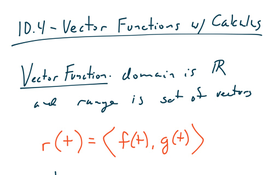 10.4 - Vector Functions w/ Calculus
Vector Function. domain is ℝ
and range is set of vectors
r(t) = ⟨f(t), g(t)⟩